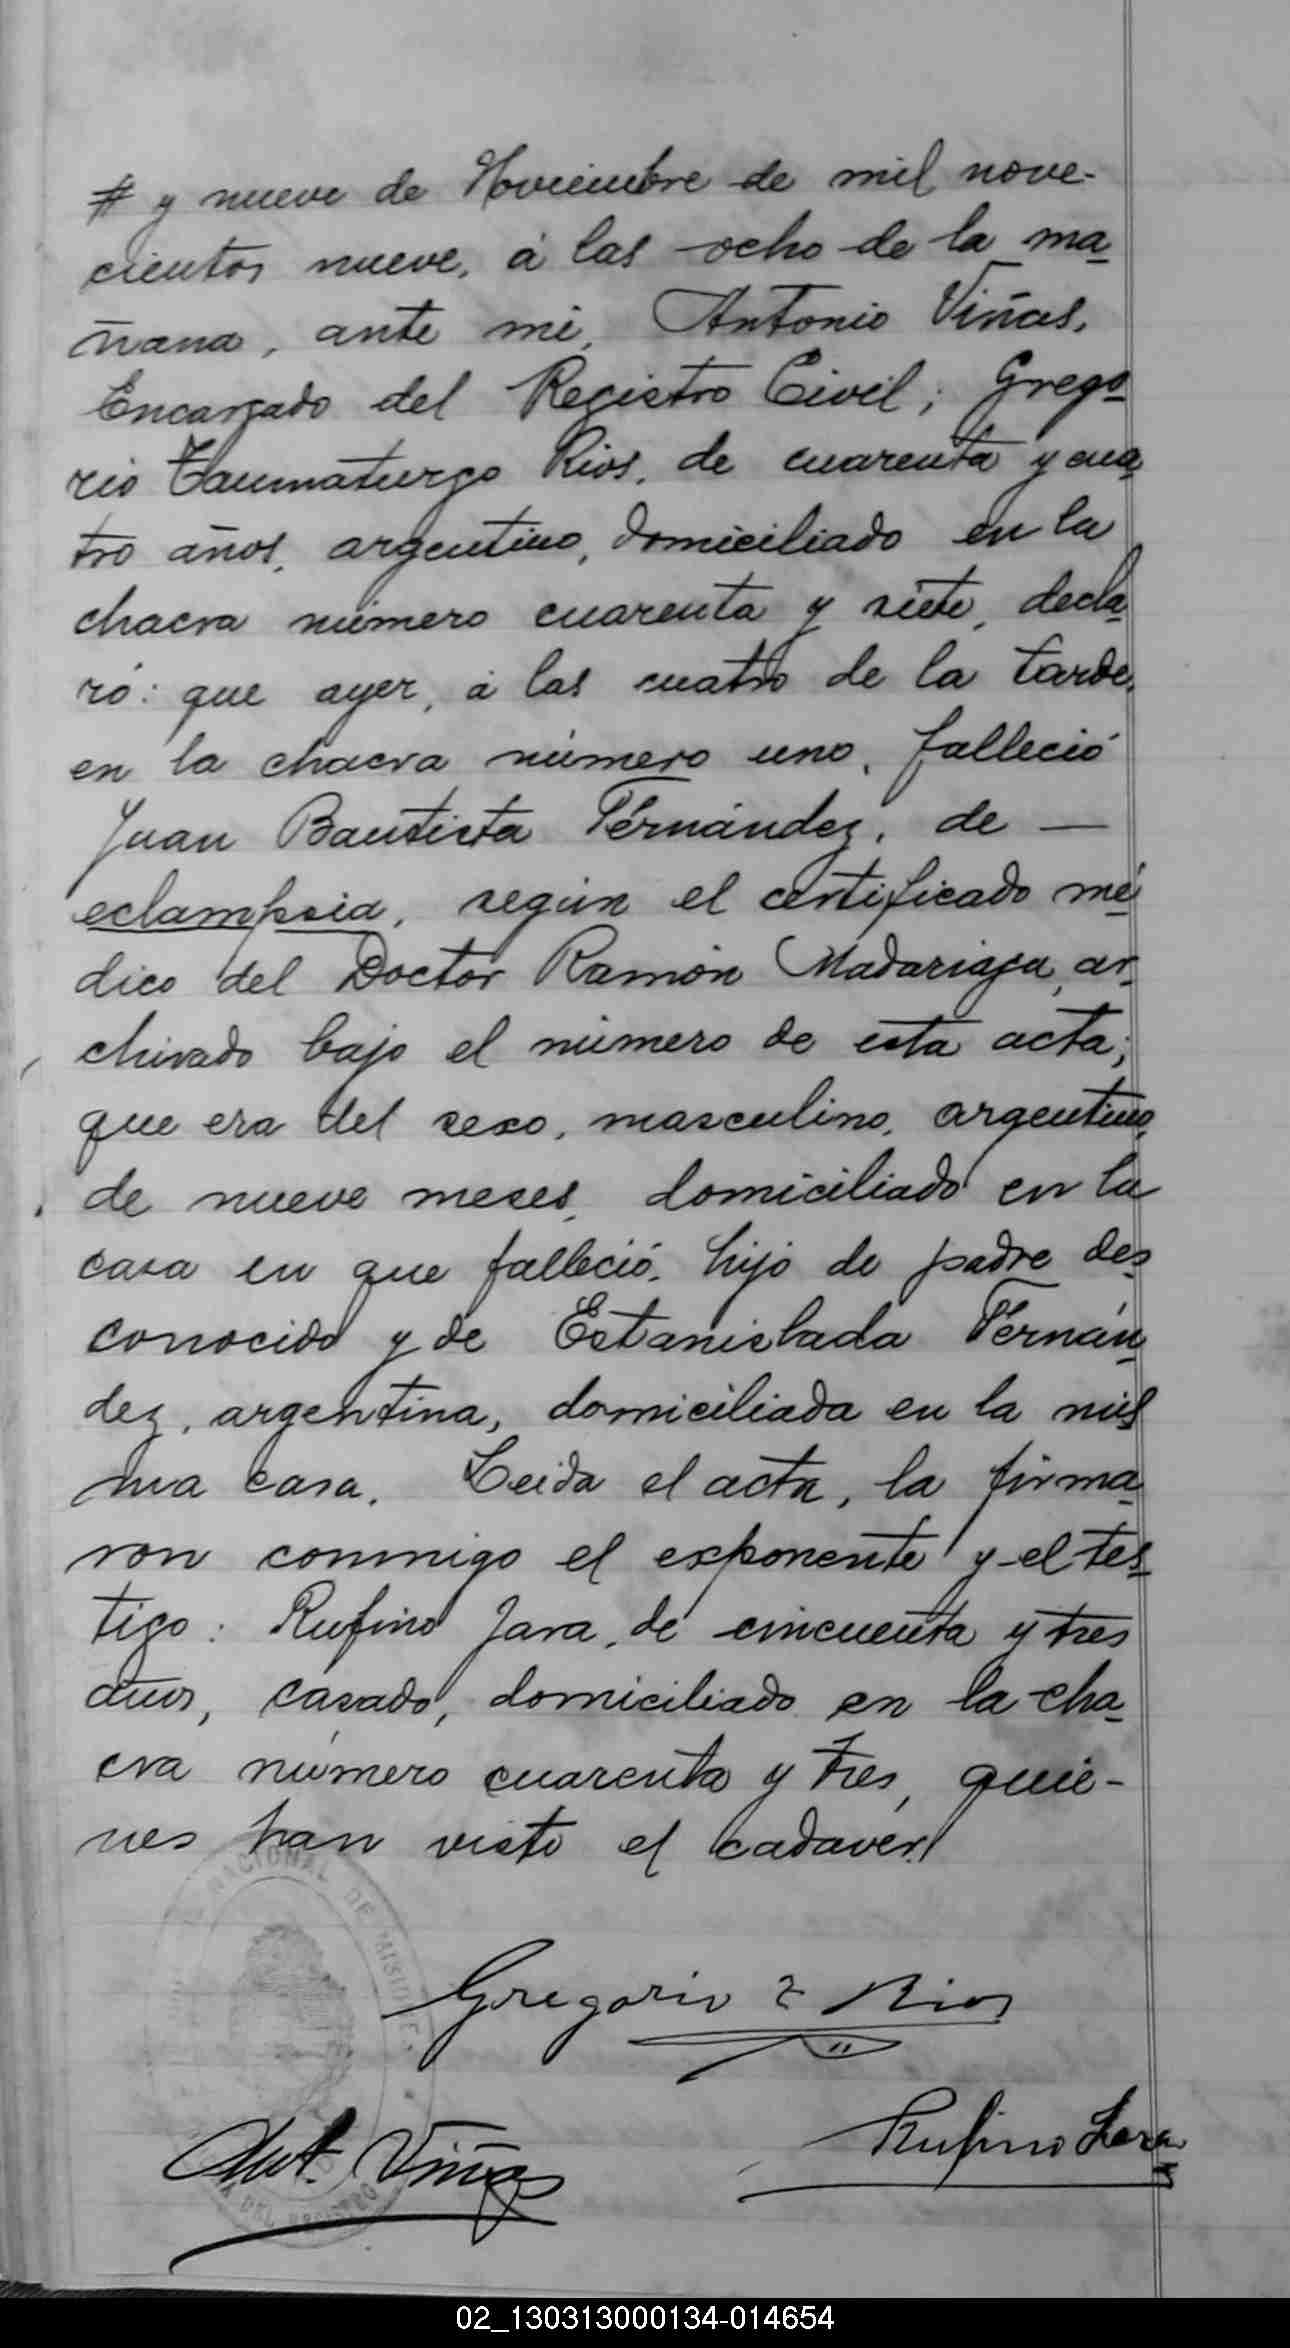 # y nueve de Noviembre de mil nove-
cientos nueve, á las ocho de la ma-
ñana, ante mi, Antonio Viñas,
Encargado del Registro Civil; Grego-
rio Taumaturgo Rios, de cuarenta y cua-
tro años, argentino, domiciliado en la
chacra número cuarenta y siete, decla-
ró: que ayer, á las cuatro de la tarde,
en la chacra número uno, falleció
Juan Bautista Fernández, de —
eclampsia, según el certificado mé-
dico del Doctor Ramón Madariaga, ar-
chivado bajo el número de esta acta;
que era del sexo, masculino, argentino,
de nueve meses, domiciliado en la
casa en que falleció, hijo de padre des-
conocido y de Estanislada Fernán-
dez, argentina, domiciliada en la mis-
ma casa. Leida el acta, la firma-
ron conmigo el exponente y el tes-
tigo: Rufino Jara, de cincuenta y tres
años, casado, domiciliado en la cha-
cra número cuarenta y tres, quie-
nes han visto el cadaver.
NACIONAL DE MISIONES
Gregorio T Rios
Ant. Viñas
Rufino Jara
DEL REGISTRO
02_130313000134-014654